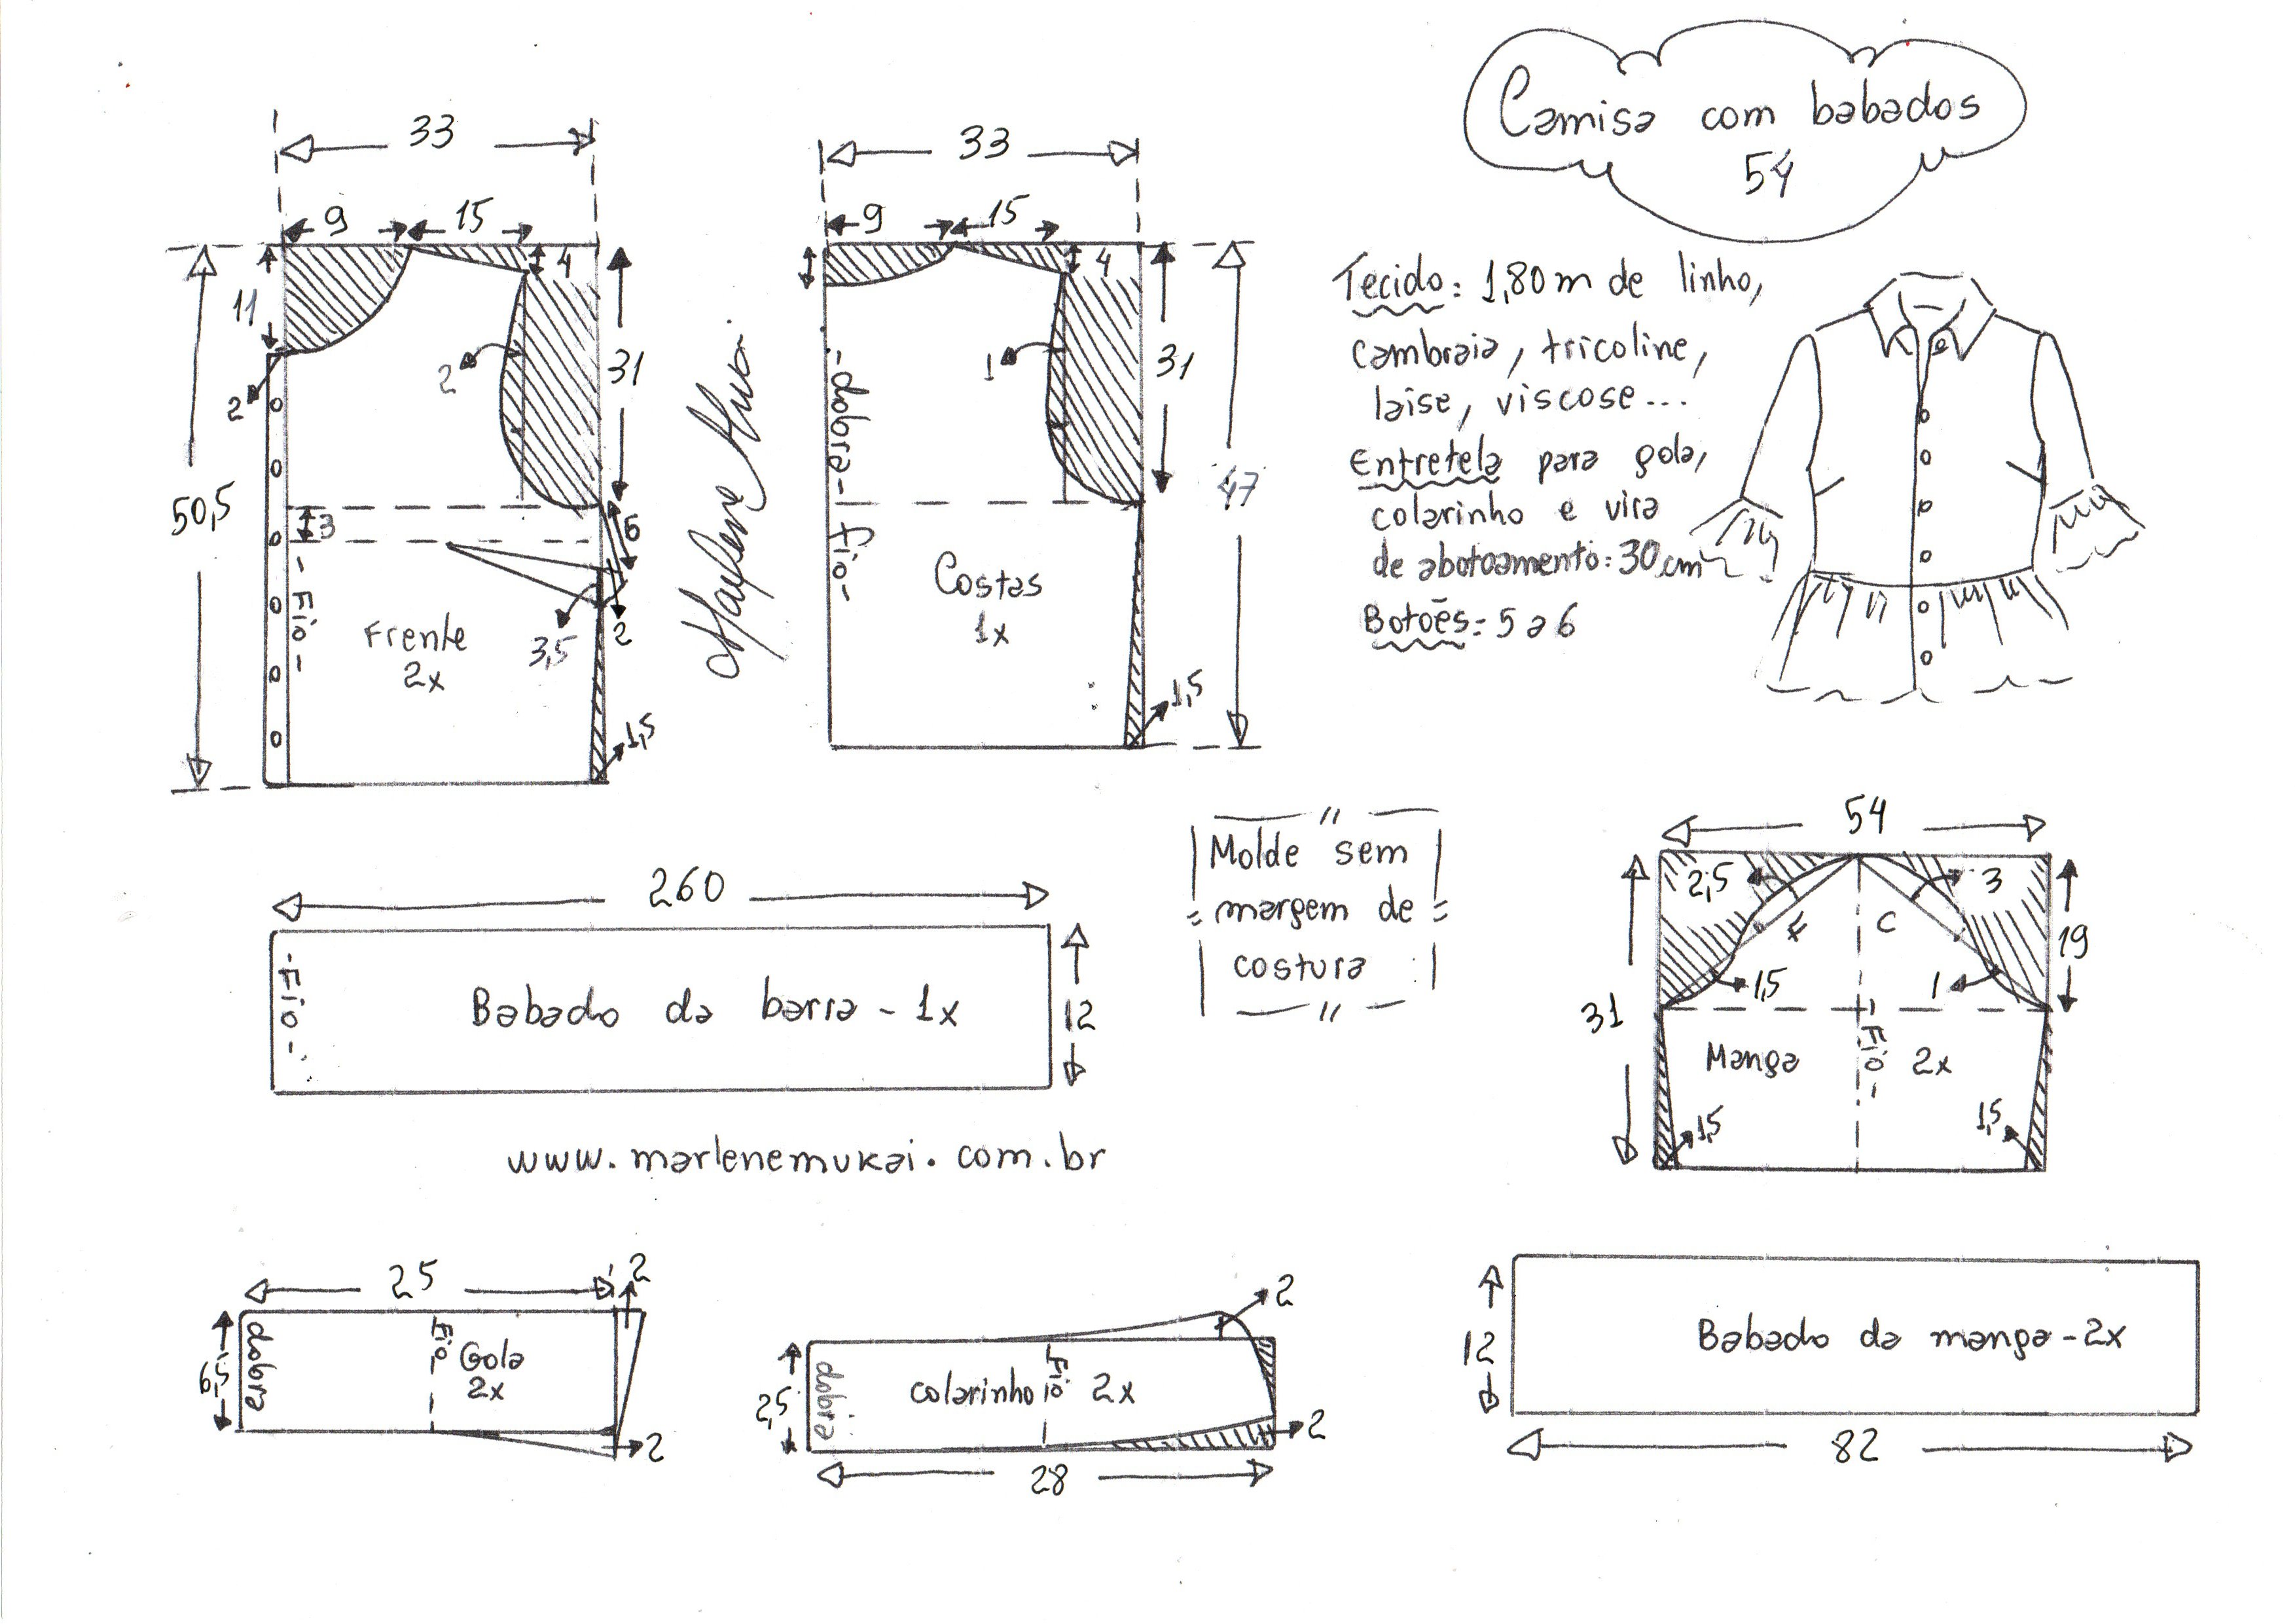 Camisa com babados
54
33
9
15
4
11
2
2
31
50,5
3
6
3,5
2
- Fio -
Frente
2x
1,5
Marlene Mukai
33
9
15
4
1
31
47
- dobra - fio -
Costas
1x
1,5
Tecido: 1,80m de linho,
cambraia, tricoline,
laise, viscose...
Entretela para gola,
colarinho e vira
de abotoamento: 30cm
Botões: 5 a 6
260
- Fio -
Babado da barra - 1x
12
Molde sem
margem de
costura
54
2,5
3
F
C
19
1,5
1
31
Manga
- Fio -
2x
1,5
1,5
www.marlenemukai.com.br
25
2
6,5
dobra
Fio
Gola
2x
2
2
2,5
dobra
colarinho
Fio
2x
2
28
12
Babado da manga - 2x
82